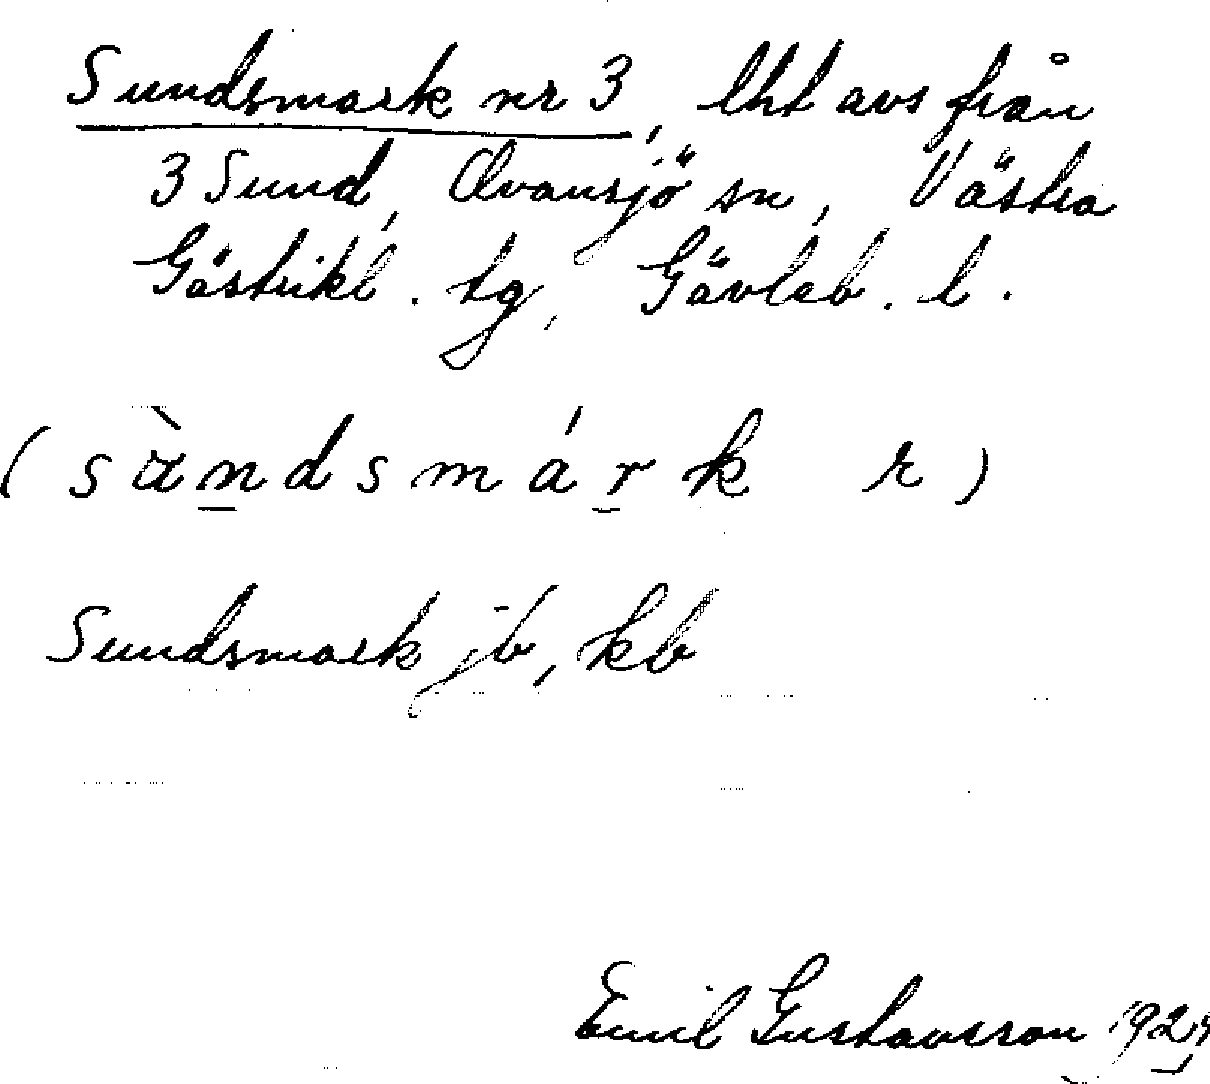 Sundsmark nr 3, lht avs från
3 Sund, Ovansjö sn, Västra
Gästrikl. tg, Gävleb. l.
(sùndsmárk r)
Sundsmark jb, kb
Emil Gustavsson